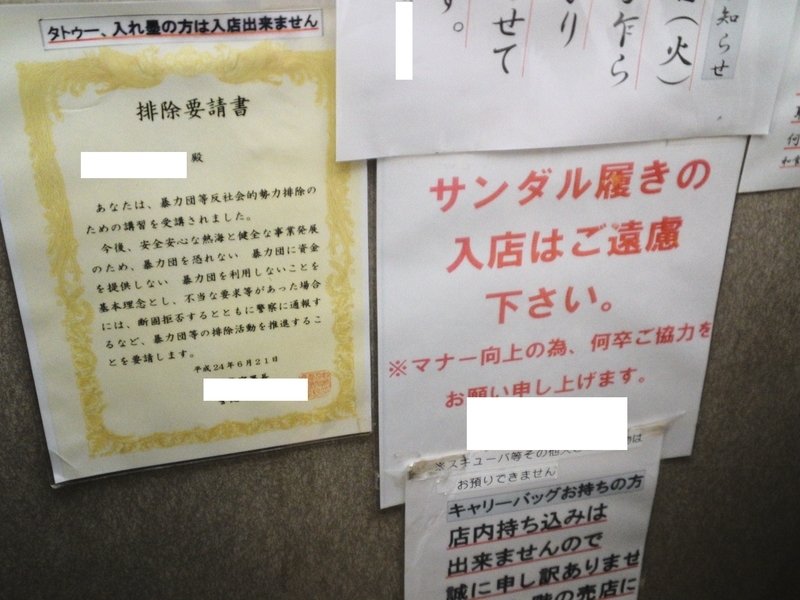 タトゥー、入れ墨の方は入店出来ません
排除要請書
殿
あなたは、暴力団等反社会的勢力排除の
ための講習を受講されました。
今後、安全安心な熱海と健全な事業発展
のため、暴力団を恐れない 暴力団に資金
を提供しない 暴力団を利用しないことを
基本理念とし、不当な要求等があった場合
には、断固拒否するとともに警察に通報す
るなど、暴力団等の排除活動を推進するこ
とを要請します。
平成24年6月21日
知らせ
（火）
乍ら
り
せて
す。
サンダル履きの
入店はご遠慮
下さい。
※マナー向上の為、何卒ご協力を
お願い申し上げます。
※スキューバ等その他
お預りできません
キャリーバッグお持ちの方
店内持ち込みは
出来ませんので
誠に申し訳ありませ
階の売店に
何